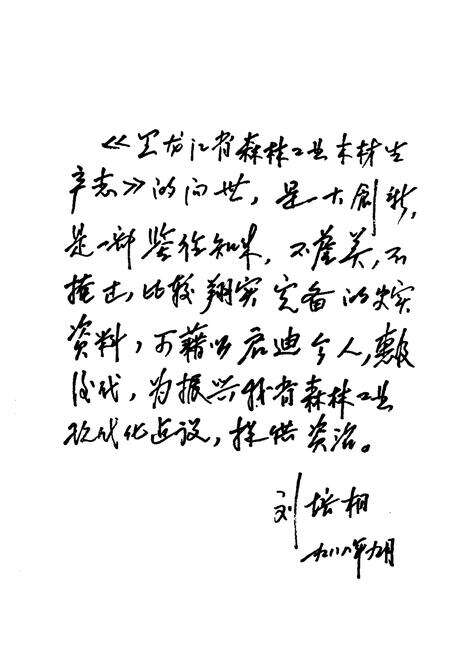 《黑龙江省森林工业木材生
产志》的问世，是一大创新，
是一部鉴往知来，不虚美，不
掩过，比较翔实完备的史实
资料，可藉以启迪今人，惠及
后代，为振兴我省森林工业
现代化建设，提供资治。
刘培相
一九八八年九月